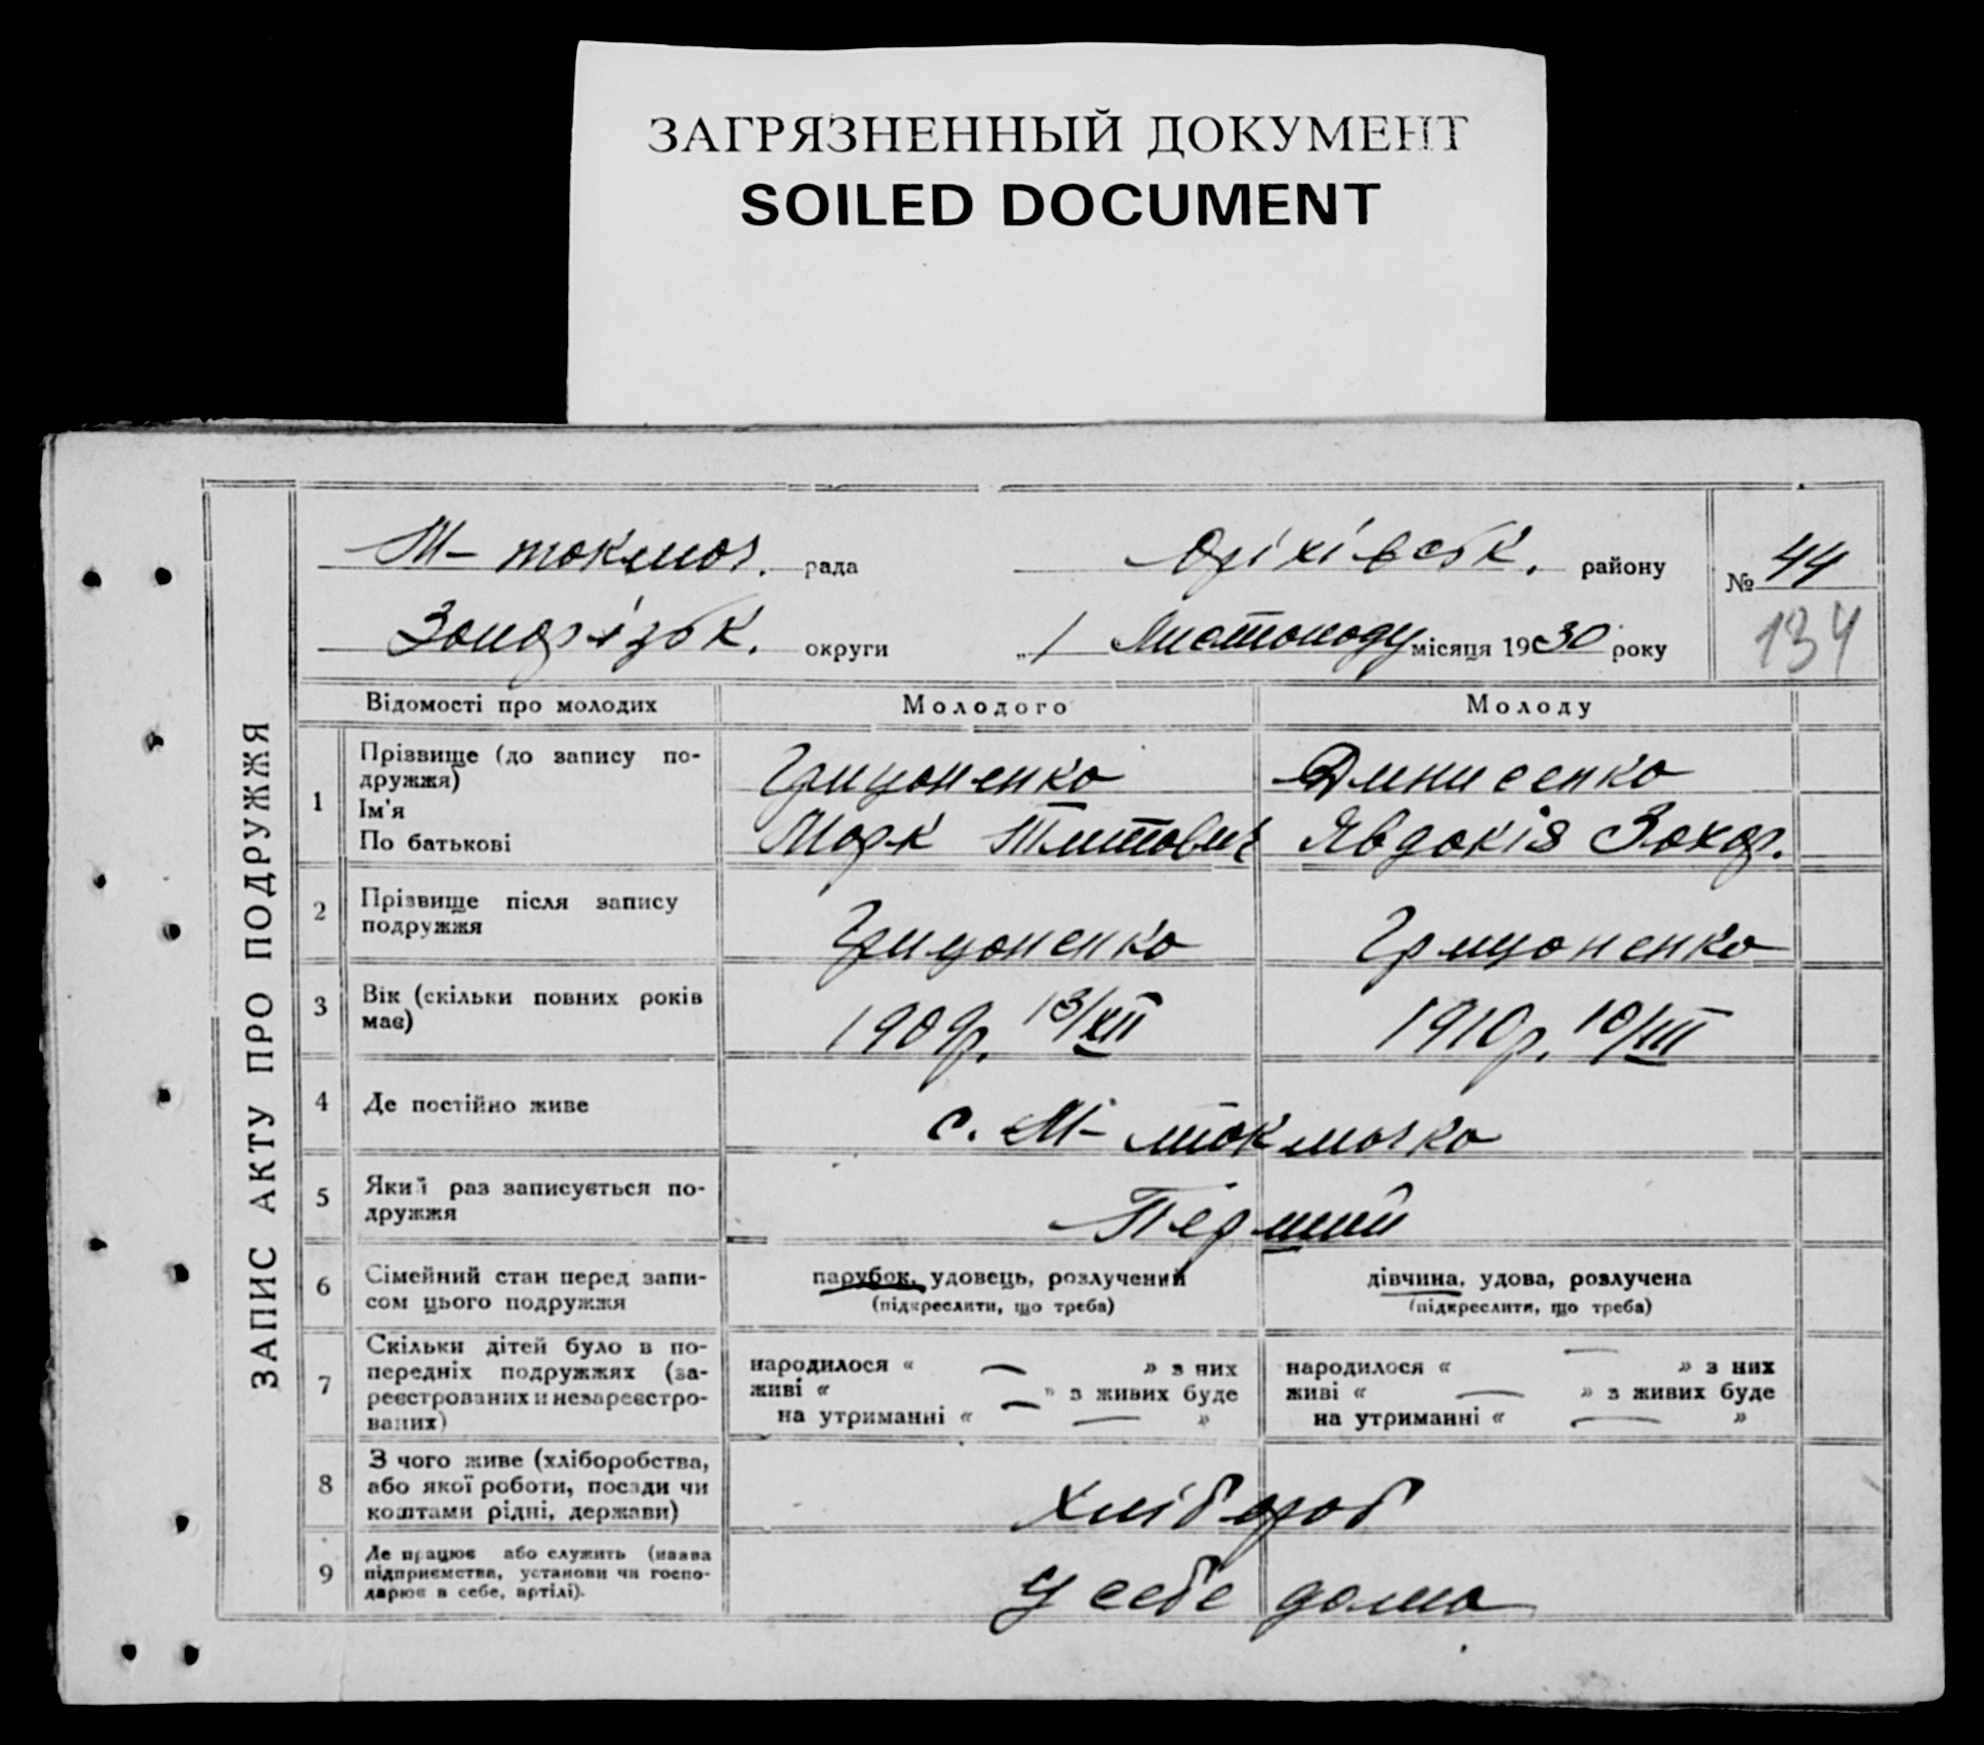 ЗАГРЯЗНЕННЫЙ ДОКУМЕНТ
SOILED DOCUMENT
ЗАПИС АКТУ ПРО ПОДРУЖЖЯ
М-токмач. рада Оріхівськ. району № 44
Запорізьк. округи „1 Листопаду місяця 1930 року 134
Відомості про молодих Молодого Молоду
1 Прізвище (до запису по-
дружжя) Грицаненко Денисенко
Ім'я
По батькові Марк Титович Явдокія Захар.
2 Прізвище після запису
подружжя Грицоненко Грицоненко
3 Вік (скільки повних років
має) 1909р. 13/XII 1910р. 10/III
4 Де постійно живе с. М-токмачка
5 Який раз записується по-
дружжя Перший
6 Сімейний стан перед запи-
сом цього подружжя
парубок, удовець, розлучений дівчина, удова, розлучена
(підкреслити, що треба) (підкреслити, що треба)
7 Скільки дітей було в по-
передніх подружжях (за-
реєстрованих и незареєстро-
ваних)
народилося « — » з них народилося « — » з них
живі « — » з живих буде живі « — » з живих буде
на утриманні « — » на утриманні « — »
8 З чого живе (хліборобства,
або якої роботи, посади чи
коштами рідні, держави) хлібороб
9 Де працює або служить (назва
підприємства, установи чи госпо-
дарює в себе, артілі). У себе дома